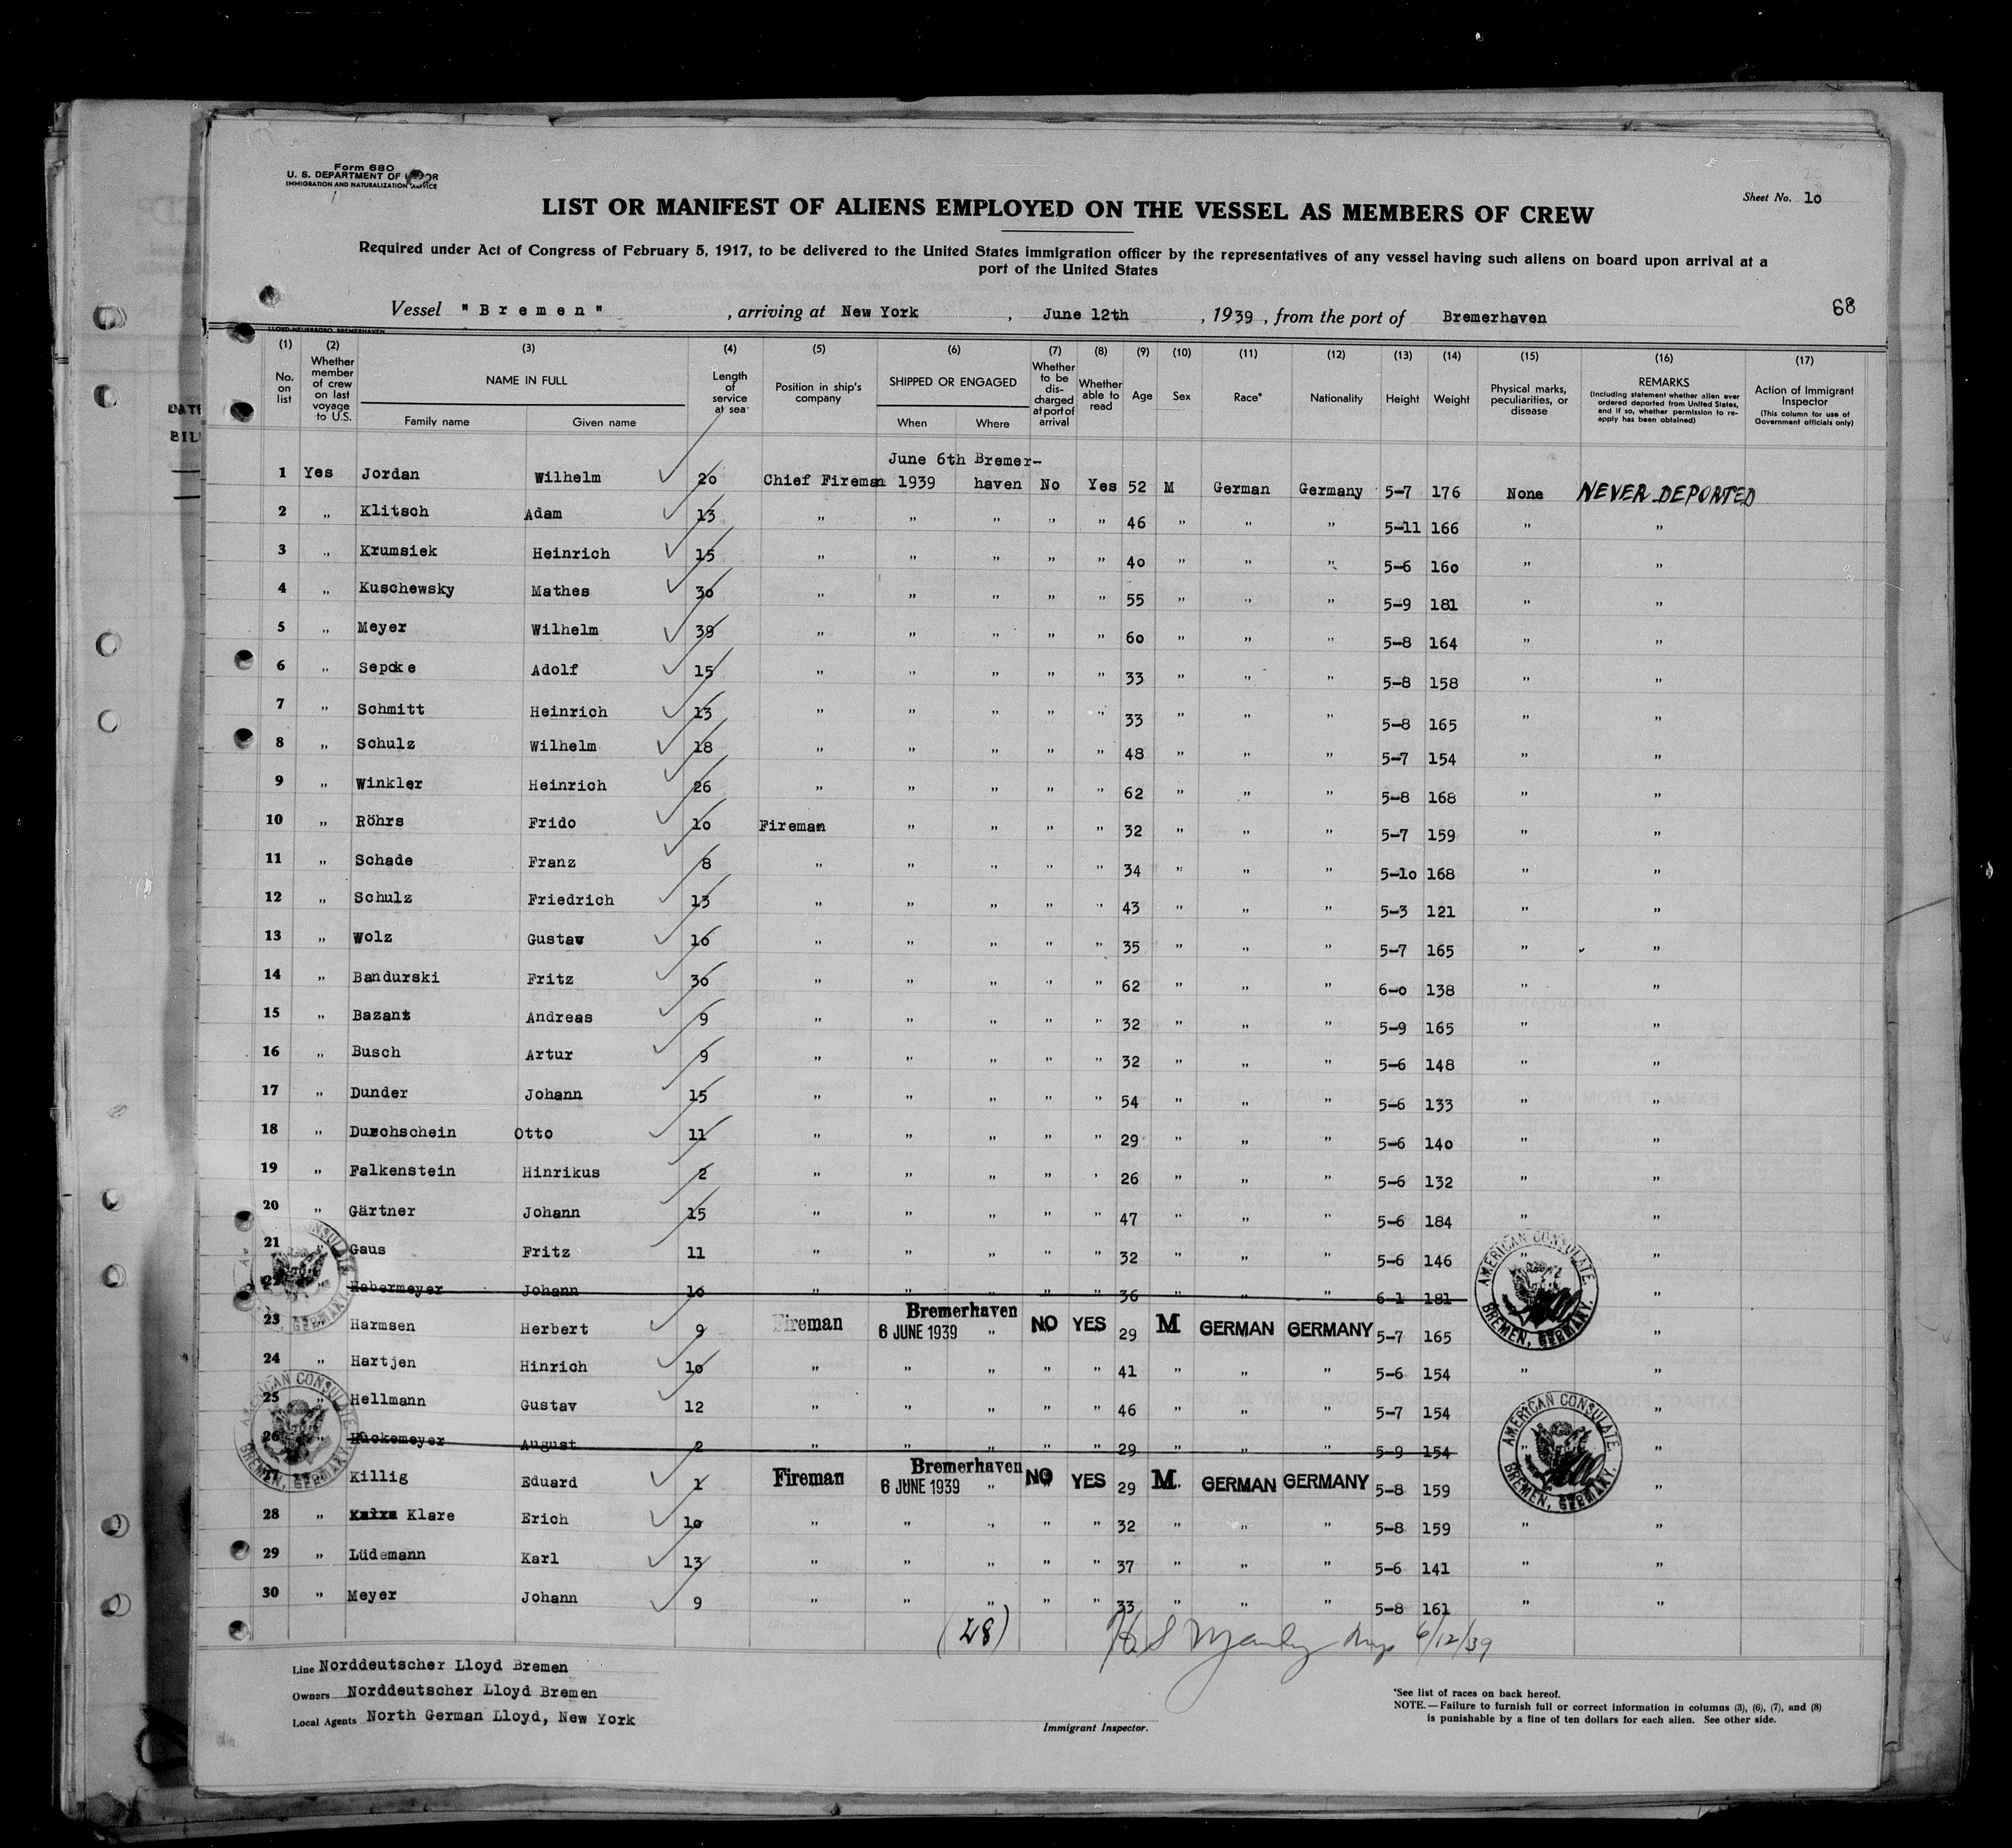 Form 680
U. S. DEPARTMENT OF LABOR
IMMIGRATION AND NATURALIZATION SERVICE
Sheet No. 10
LIST OR MANIFEST OF ALIENS EMPLOYED ON THE VESSEL AS MEMBERS OF CREW
Required under Act of Congress of February 5, 1917, to be delivered to the United States immigration officer by the representatives of any vessel having such aliens on board upon arrival at a
port of the United States
68
Vessel "Bremen", arriving at New York, June 12th, 1939, from the port of Bremerhaven
LLOYD-NEUERBORG BREMERHAVEN
DATE
BILL
(1) (2) (3) (4) (5) (6) (7) (8) (9) (10) (11) (12) (13) (14) (15) (16) (17)
No. on list
Whether member of crew on last voyage to U.S.
NAME IN FULL
Family name Given name
Length of service at sea
Position in ship's company
SHIPPED OR ENGAGED
When Where
Whether to be discharged at port of arrival
Whether able to read
Age
Sex
Race*
Nationality
Height
Weight
Physical marks, peculiarities, or disease
REMARKS
(Including statement whether alien ever ordered deported from United States, and if so, whether permission to reapply has been obtained)
Action of Immigrant Inspector
(This column for use of Government officials only)
June 6th Bremer-
1 Yes Jordan Wilhelm 20 Chief Fireman 1939 haven No Yes 52 M German Germany 5-7 176 None NEVER DEPORTED
2 " Klitsch Adam 13 " " " " " 46 " " " 5-11 166 " "
3 " Krumsiek Heinrich 15 " " " " " 40 " " " 5-6 160 " "
4 " Kuschewsky Mathes 30 " " " " " 55 " " " 5-9 181 " "
5 " Meyer Wilhelm 39 " " " " " 60 " " " 5-8 164 " "
6 " Sepcke Adolf 15 " " " " " 33 " " " 5-8 158 " "
7 " Schmitt Heinrich 13 " " " " " 33 " " " 5-8 165 " "
8 " Schulz Wilhelm 18 " " " " " 48 " " " 5-7 154 " "
9 " Winkler Heinrich 26 " " " " " 62 " " " 5-8 168 " "
10 " Röhrs Frido 10 Fireman " " " " 32 " " " 5-7 159 " "
11 " Schade Franz 8 " " " " " 34 " " " 5-10 168 " "
12 " Schulz Friedrich 13 " " " " " 43 " " " 5-3 121 " "
13 " Wolz Gustav 16 " " " " " 35 " " " 5-7 165 " "
14 " Bandurski Fritz 30 " " " " " 62 " " " 6-0 138 " "
15 " Bazant Andreas 9 " " " " " 32 " " " 5-9 165 " "
16 " Busch Artur 9 " " " " " 32 " " " 5-6 148 " "
17 " Dunder Johann 15 " " " " " 54 " " " 5-6 133 " "
18 " Durchschein Otto 11 " " " " " 29 " " " 5-6 140 " "
19 " Falkenstein Hinrikus 2 " " " " " 26 " " " 5-6 132 " "
20 " Gärtner Johann 15 " " " " " 47 " " " 5-6 184 " "
21 " Gaus Fritz 11 " " " " " 32 " " " 5-6 146 " "
22 " Habermeyer Johann 16 " " " " " 36 " " " 6-1 181 "
23 " Harmsen Herbert 9 Fireman Bremerhaven 6 JUNE 1939 " NO YES 29 M GERMAN GERMANY 5-7 165 "
24 " Hartjen Hinrich 10 " " " " " 41 " " " 5-6 154 " "
25 " Hellmann Gustav 12 " " " " " 46 " " " 5-7 154 "
26 " Hückemeyer August 2 " " " " " 29 " " " 5-9 154 " "
27 " Killig Eduard 1 Fireman Bremerhaven 6 JUNE 1939 " NO YES 29 M. GERMAN GERMANY 5-8 159 "
28 " Klare Erich 10 " " " " " 32 " " " 5-8 159 " "
29 " Lüdemann Karl 13 " " " " " 37 " " " 5-6 141 " "
30 " Meyer Johann 9 " " " " " 33 " " " 5-8 161 " "
AMERICAN CONSULATE. BREMEN, GERMANY.
AMERICAN CONSULATE. BREMEN, GERMANY.
AMERICAN CONSULATE. BREMEN, GERMANY.
AMERICAN CONSULATE. BREMEN, GERMANY.
(28) 6/12/39
Line Norddeutscher Lloyd Bremen
Owners Norddeutscher Lloyd Bremen
Local Agents North German Lloyd, New York
Immigrant Inspector.
*See list of races on back hereof.
NOTE.—Failure to furnish full or correct information in columns (3), (6), (7), and (8)
is punishable by a fine of ten dollars for each alien. See other side.